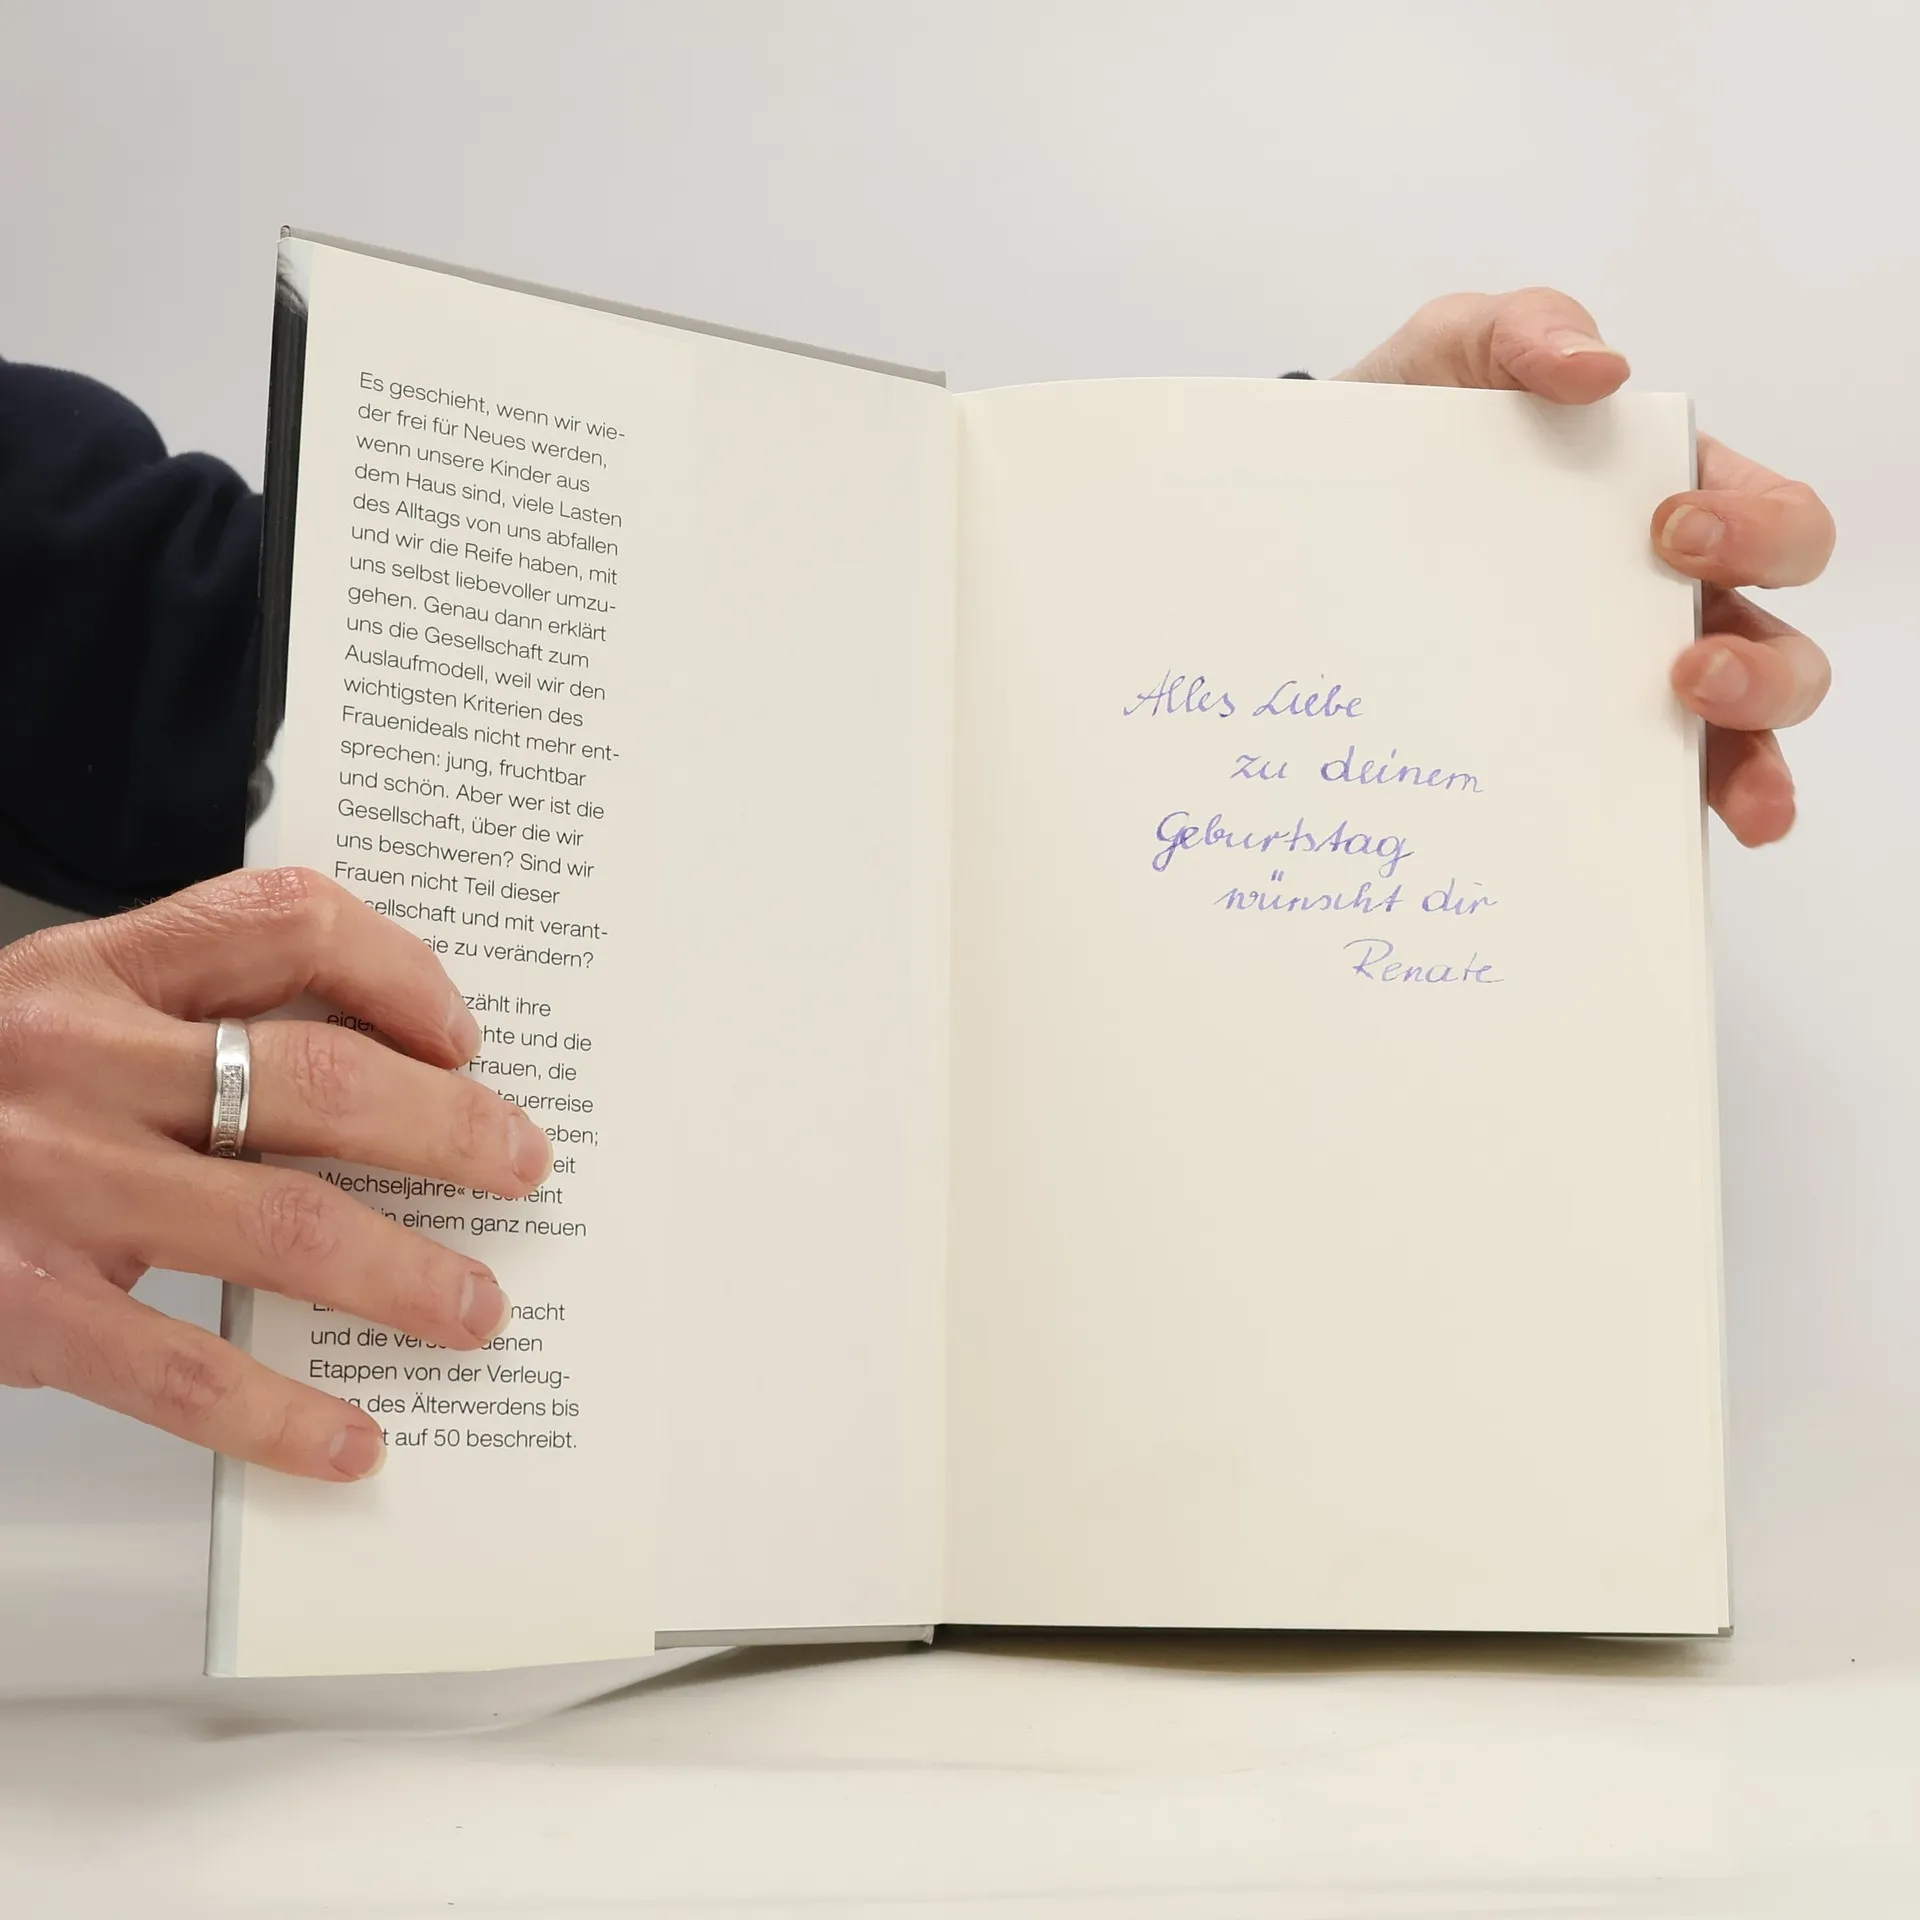 Es geschieht, wenn wir wie-
der frei für Neues werden,
wenn unsere Kinder aus
dem Haus sind, viele Lasten
des Alltags von uns abfallen
und wir die Reife haben, mit
uns selbst liebevoller umzu-
gehen. Genau dann erklärt
uns die Gesellschaft zum
Auslaufmodell, weil wir den
wichtigsten Kriterien des
Frauenideals nicht mehr ent-
sprechen: jung, fruchtbar
und schön. Aber wer ist die
Gesellschaft, über die wir
uns beschweren? Sind wir
Frauen nicht Teil dieser
sellschaft und mit verant-
sie zu verändern?
zählt ihre
hte und die
Frauen, die
euerreise
eben;
eit
Wechseljahre« erscheint
in einem ganz neuen
macht
und die
enen
Etappen von der Verleug-
des Älterwerdens bis
t auf 50 beschreibt.
Alles Liebe
zu deinem
Geburtstag
wünscht dir
Renate